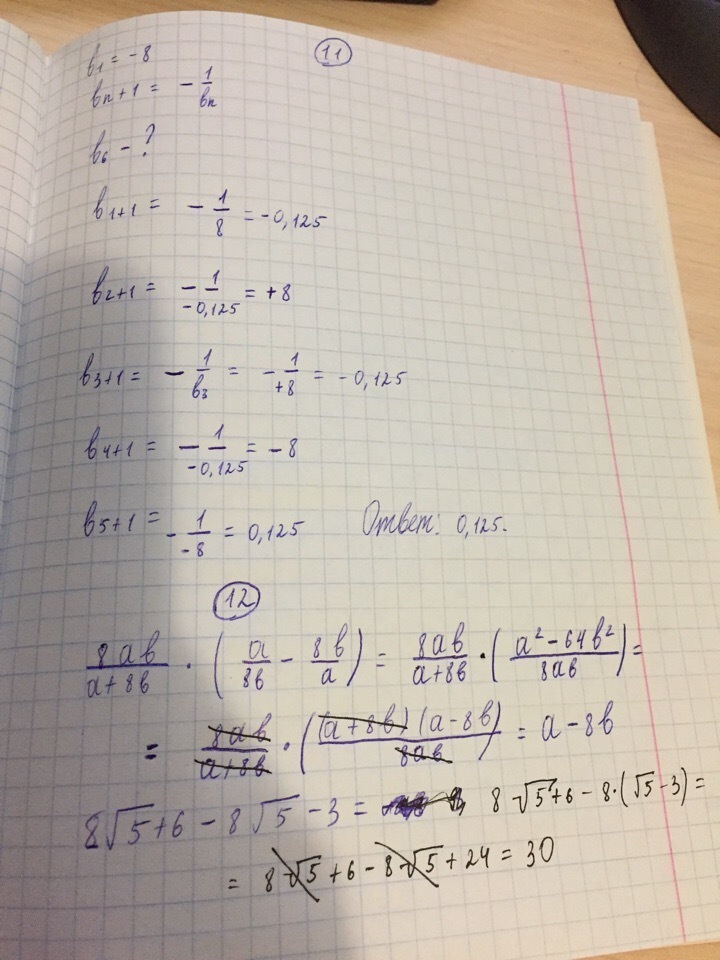 11
b₁ = -8
bₙ+1 = - 1/bₙ
b₆ - ?
b₁₊₁ = - 1/8 = -0,125
b₂₊₁ = - 1/-0,125 = +8
b₃₊₁ = - 1/b₃ = - 1/+8 = -0,125
b₄₊₁ = - 1/-0,125 = -8
b₅₊₁ = - 1/-8 = 0,125 Ответ: 0,125.
12
8ab/a+8b · (a/8b - 8b/a) = 8ab/a+8b · (a²-64b²/8ab) =
= 8ab/a+8b · ((a+8b)(a-8b)/8ab) = a-8b
8√5+6 - 8√5 -3 = 8√5+6 - 8·(√5-3) =
= 8√5 +6 - 8√5 + 24 = 30